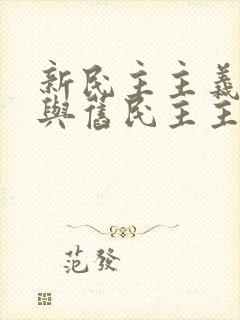 新民主主義
與舊民主主
范發